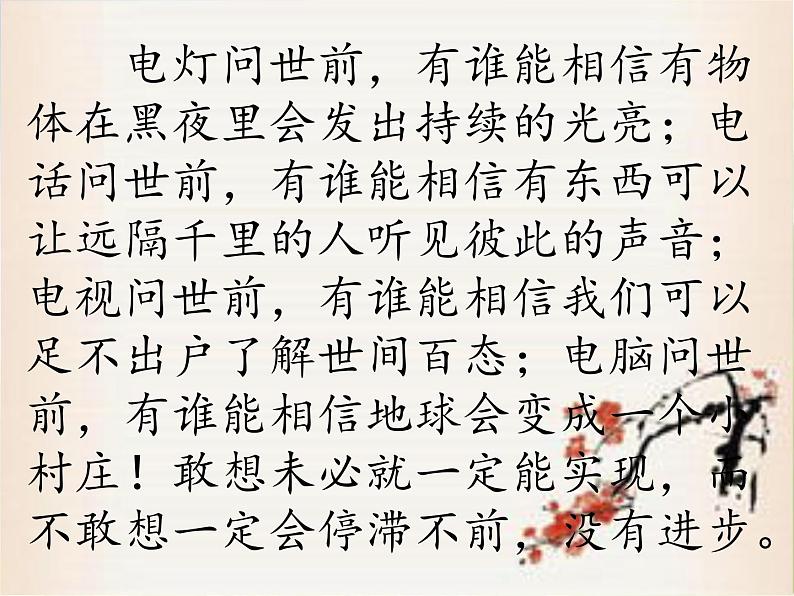 电灯问世前，有谁能相信有物
体在黑夜里会发出持续的光亮；电
话问世前，有谁能相信有东西可以
让远隔千里的人听见彼此的声音；
电视问世前，有谁能相信我们可以
足不出户了解世间百态；电脑问世
前，有谁能相信地球会变成一个小
村庄！敢想未必就一定能实现，而
不敢想一定会停滞不前，没有进步。